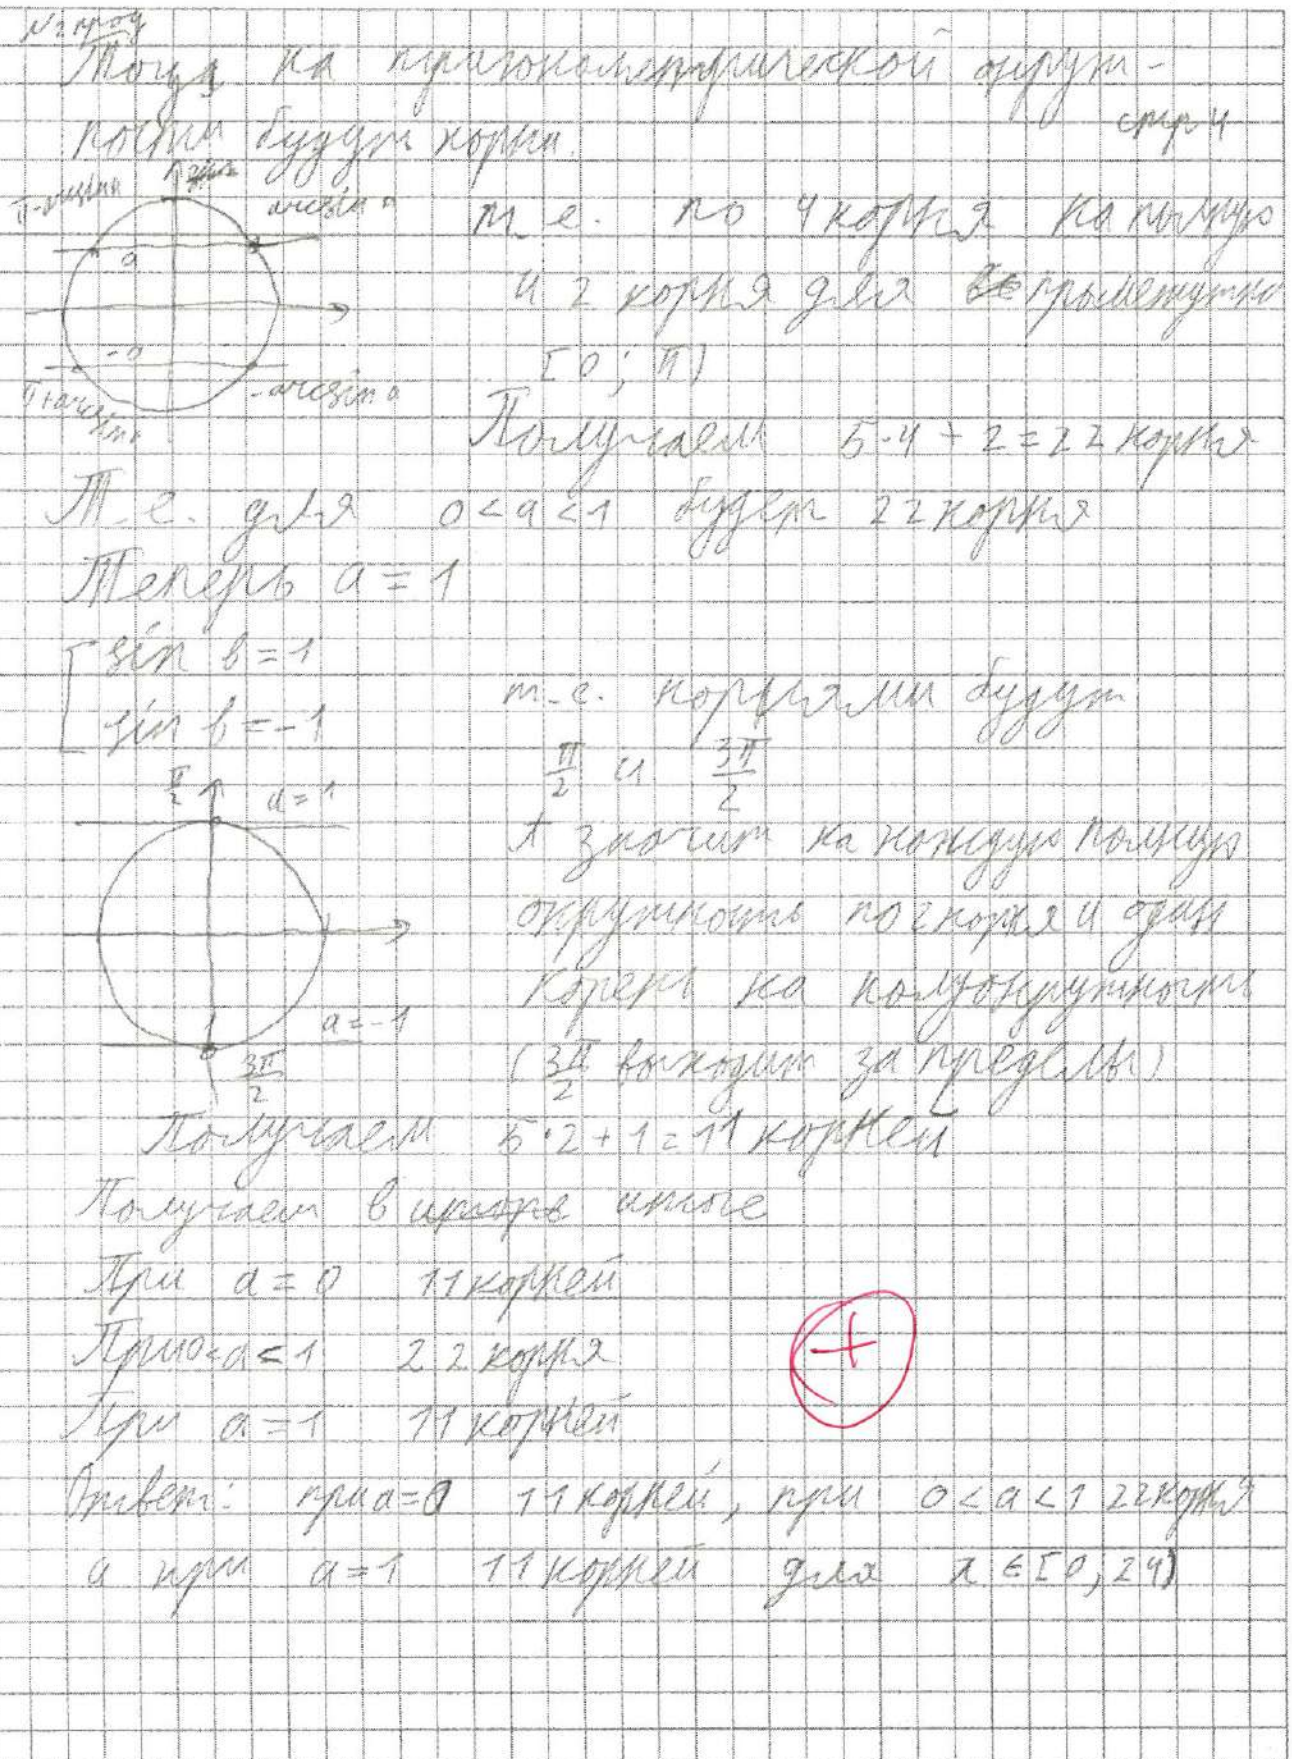 N2 прод
Тогда на тригонометрической окруж-
ности будут корни.
стр 4
π-arcsin a
arcsin a
a
-a
π+arcsin a
-arcsin a
т.е. по 4 корня на полную
и 2 корня для промежутка
[0; π)
Получаем 5·4+2=22 корня
Т.е. для 0<a<1 будет 22 корня
Теперь a=1
sin b=1
sin b=-1
т.е. корнями будут
π/2 и 3π/2
π/2
a=1
a=-1
3π/2
А значит на каждую полную
окружность по 2 корня и один
корень на полуокружность
(3π/2 выходит за пределы)
Получаем 5·2+1=11 корней
Получаем в итоге
При a=0 11 корней
При 0<a<1 22 корня
При a=1 11 корней
+
Ответ: при a=0 11 корней, при 0<a<1 22 корня
а при a=1 11 корней для x∈[0; 24)